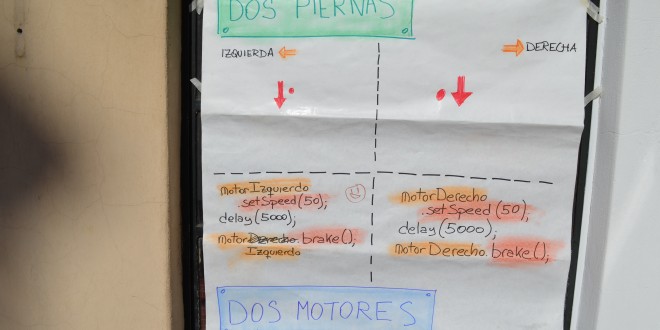 DOS PIERNAS
IZQUIERDA
DERECHA
motorIzquierdo
.setSpeed(50);
delay(5000);
motorDerecho.brake();
Izquierdo
motorDerecho
.setSpeed(50);
delay(5000);
motorDerecho.brake();
DOS MOTORES